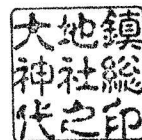 大地鎮
神社総
代之印